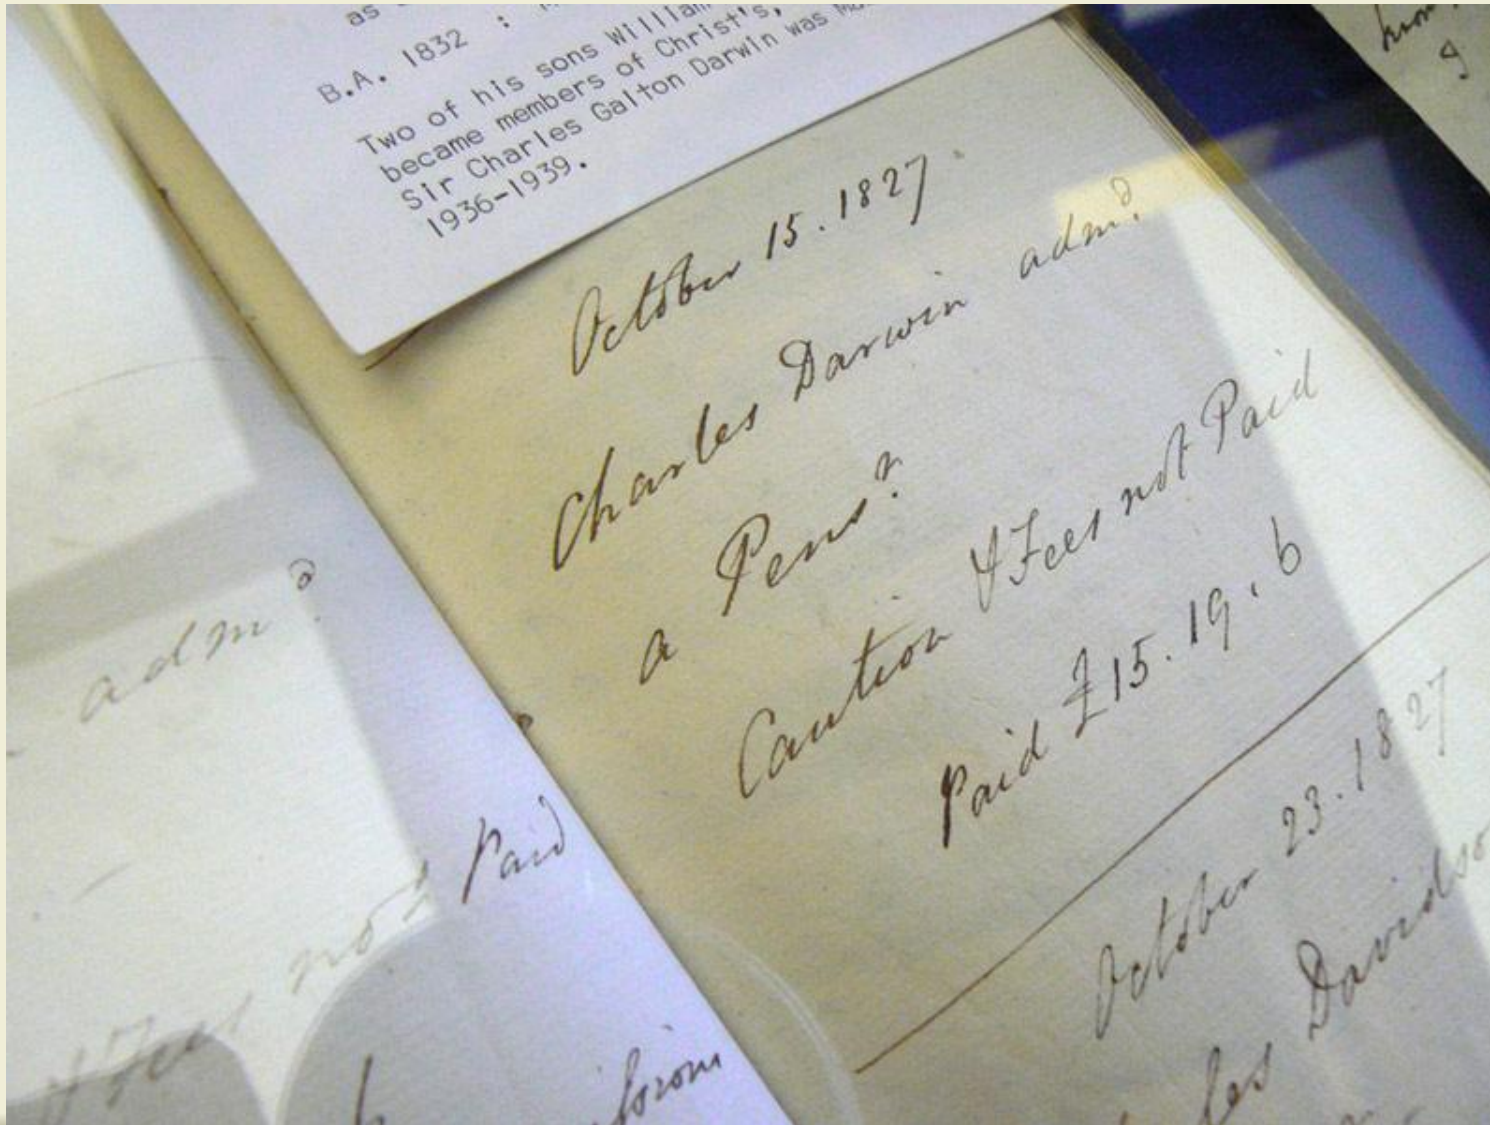 as
B.A. 1832 :
Two of his sons William
became members of Christ's,
Sir Charles Galton Darwin was
1936-1939.
October 15. 1827.
Charles Darwin admd
a Pensr
Caution & Fees not Paid
Paid £15. 19. 6
October 23. 1827
les Davidso
admd
Paid
& Fees not